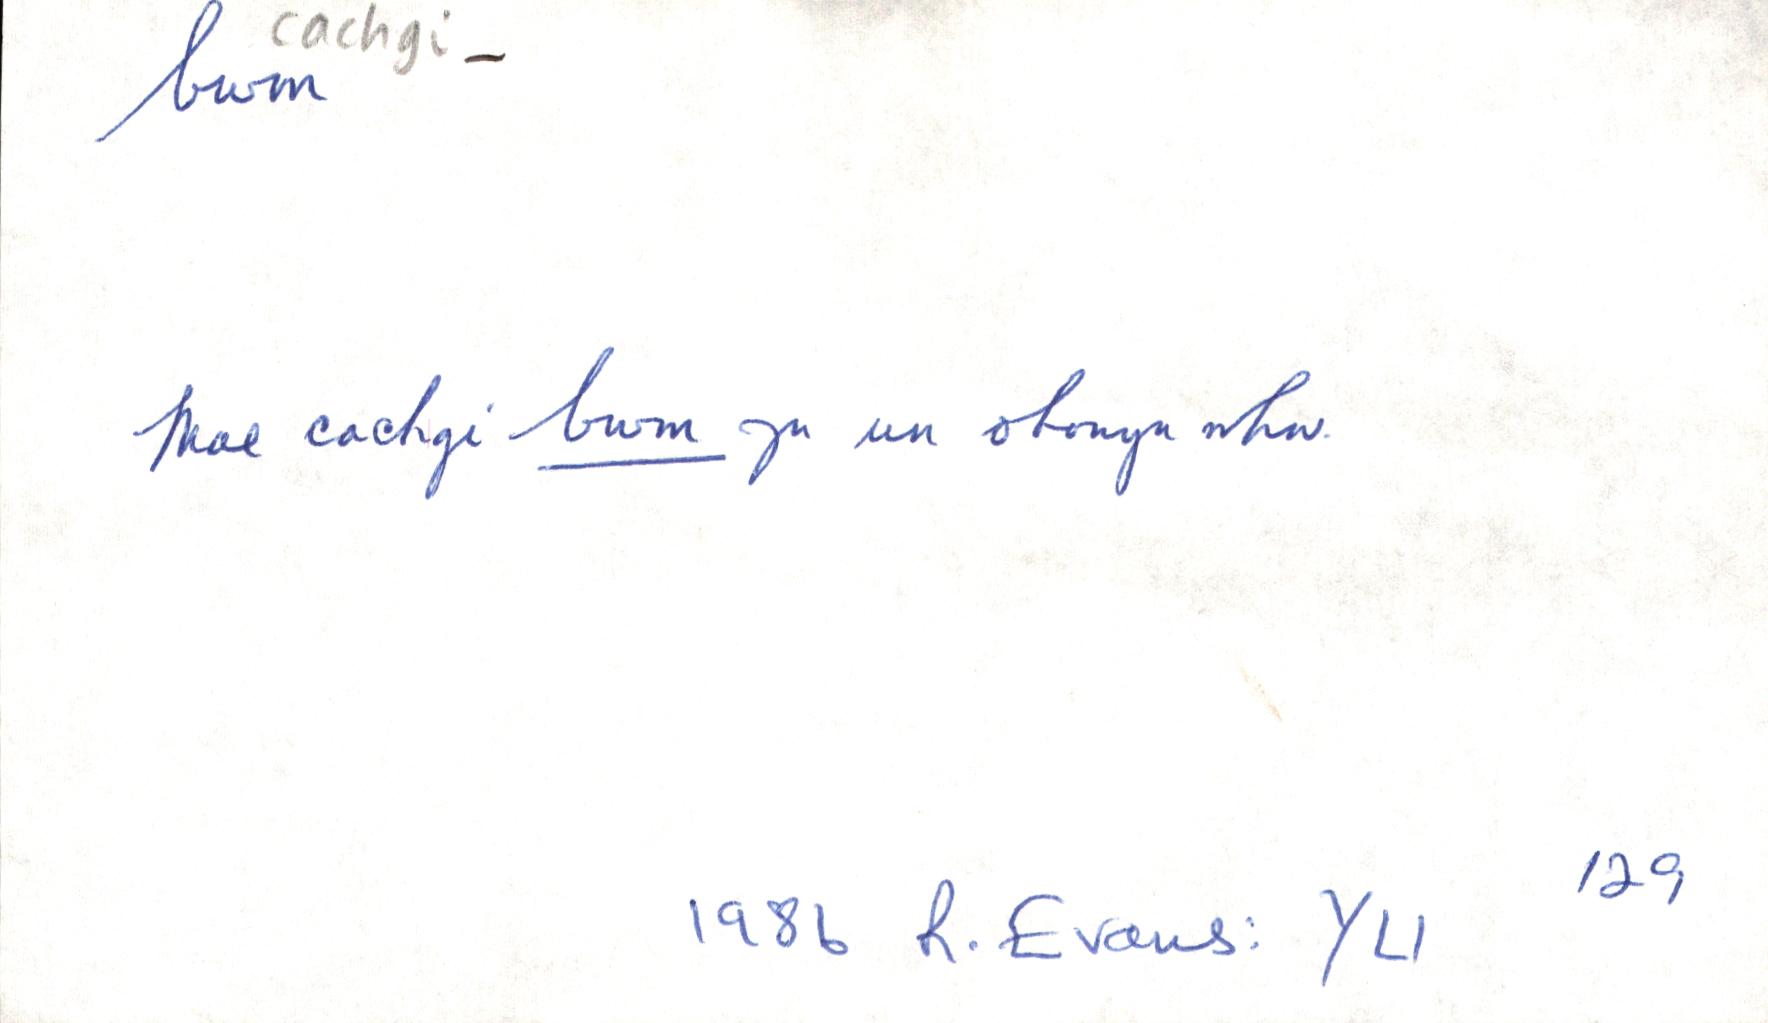 cachgi -
bwm
Mae cachgi bwm yn un ohonyn nhw.
129
1986 R. Evans: YLl